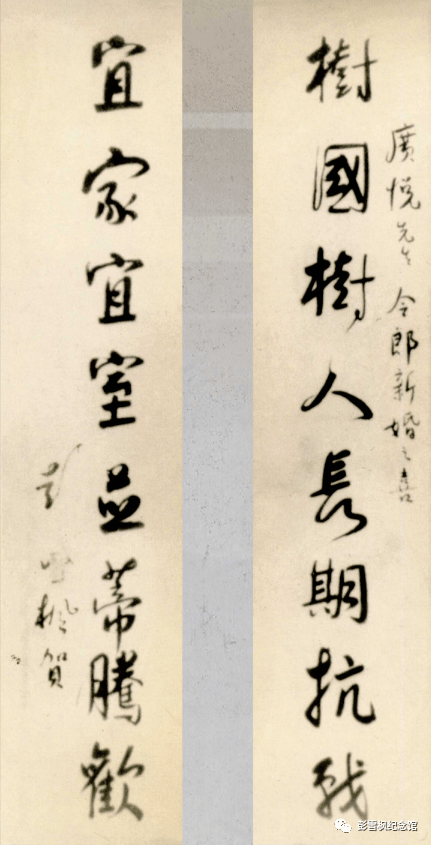 廣悅先生 令郎新婚之喜
樹國樹人長期抗戰
宜家宜室並蒂騰歡
彭雪楓賀
彭雪枫纪念馆